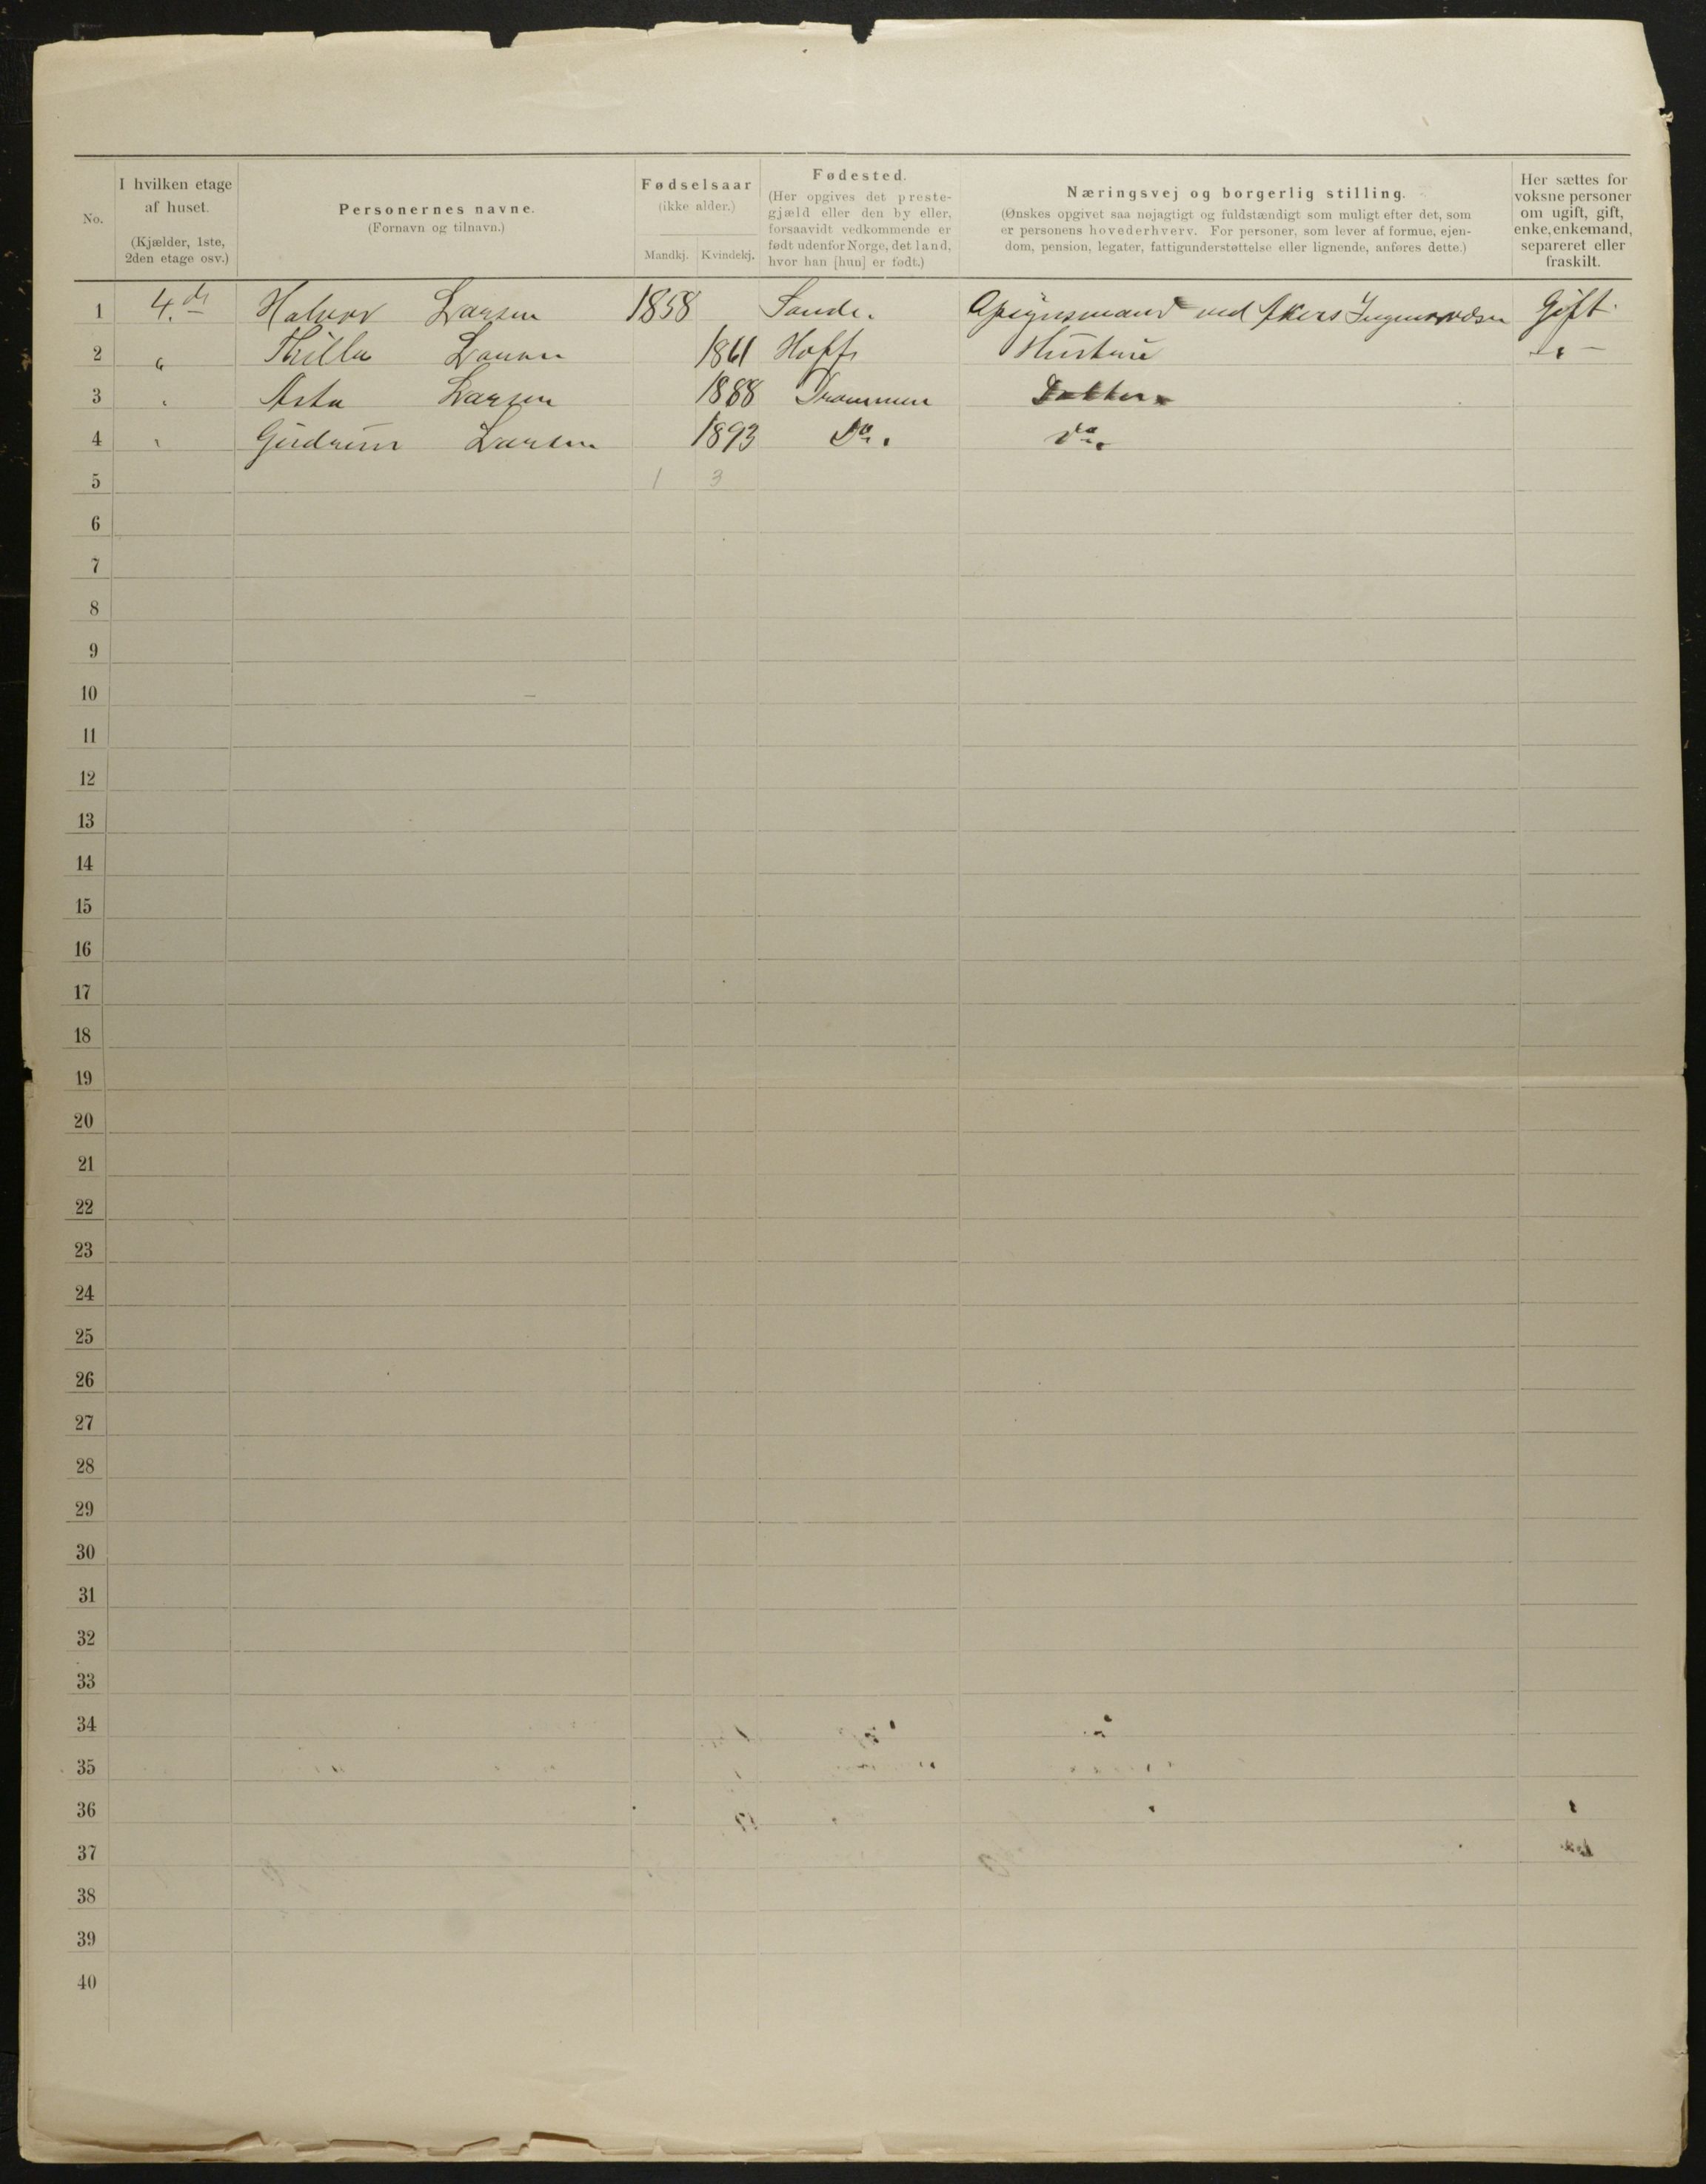 No.
I hvilken etage
af huset.
(Kjælder, 1ste,
2den etage osv.)
Personernes navne.
(Fornavn og tilnavn.)
Fødselsaar
(ikke alder.)
Mandkj. Kvindekj.
Fødested.
(Her opgives det preste-
gjæld eller den by eller,
forsaavidt vedkommende er
født udenfor Norge, det land,
hvor han [hun] er født.)
Næringsvej og borgerlig stilling.
(Ønskes opgivet saa nøjagtigt og fuldstændigt som muligt efter det, som
er personens hovederhverv. For personer, som lever af formue, ejen-
dom, pension, legater, fattigunderstøttelse eller lignende, anføres dette.)
Her sættes for
voksne personer
om ugift, gift,
enke, enkemand,
separeret eller
fraskilt.
1 4. Halvor Larsen 1858 Sande. ved Akers Gift
2 " Larsen 1861 Hoff Hustru
3 " Asta Larsen 1888 Drammen Datter
4 " Gudrun Larsen 1893 Do. do.
5 1 3
6
7
8
9
10
11
12
13
14
15
16
17
18
19
20
21
22
23
24
25
26
27
28
29
30
31
32
33
34
35
36
37
38
39
40